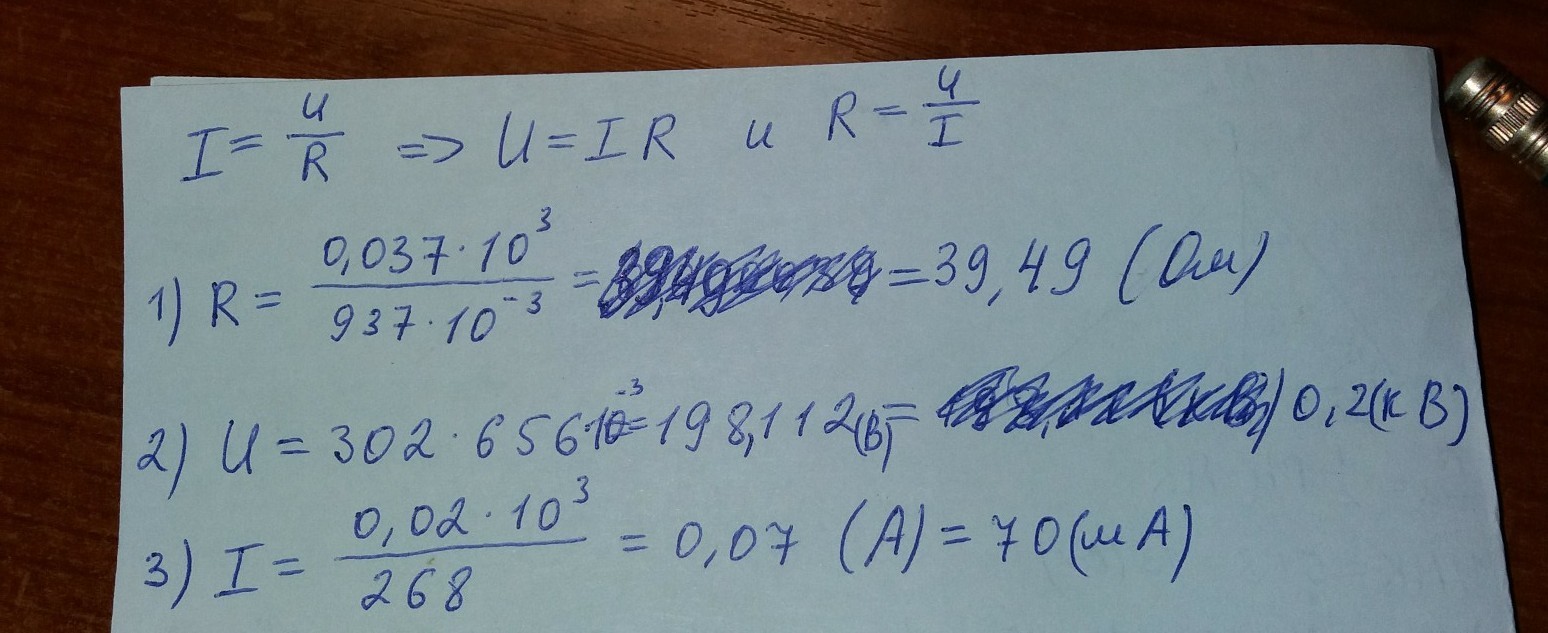 I = U/R => U = I R и R = U/I
1) R = 0,037·10³/937·10⁻³ = = 39,49 (Ом)
2) U = 302·656·10⁻³ = 198,112 (В) = 0,2 (кВ)
3) I = 0,02·10³/268 = 0,07 (А) = 70 (мА)